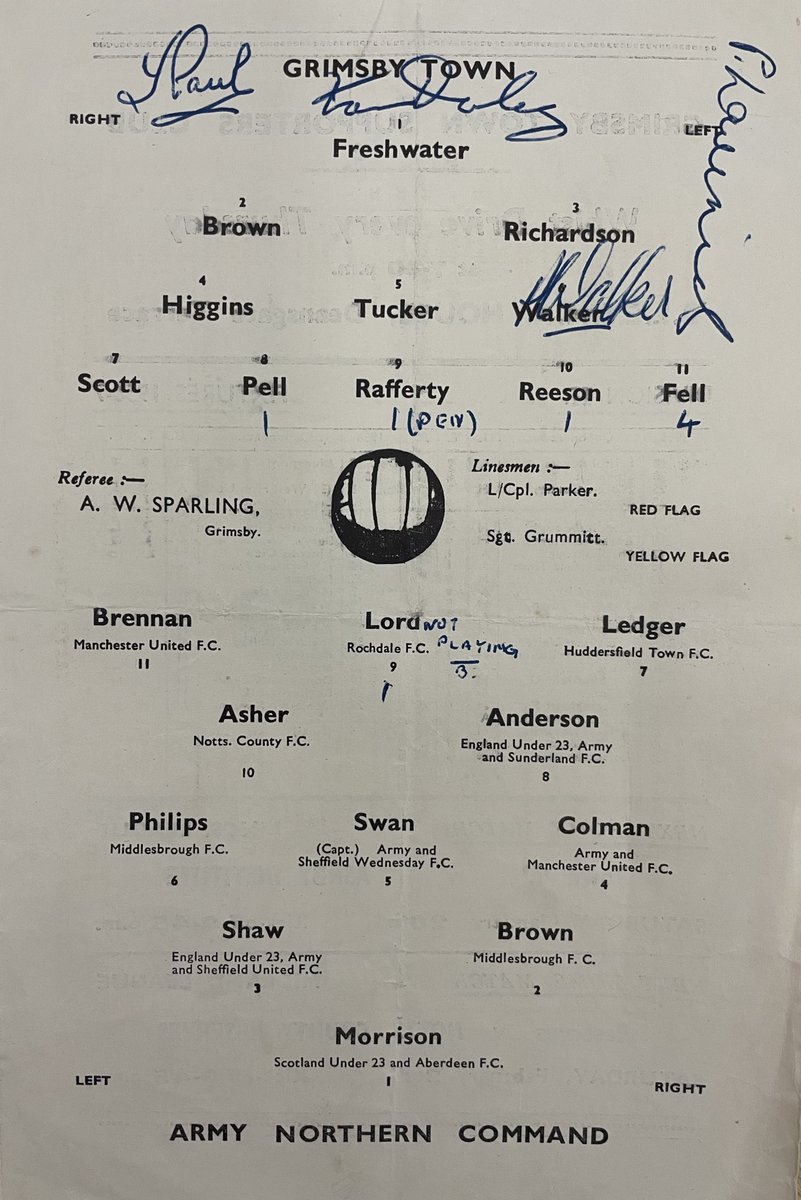 GRIMSBY TOWN
RIGHT
LEFT
1
Freshwater
2 3
Brown Richardson
4 5
Higgins Tucker Walker
7 8 9 10 11
Scott Pell Rafferty Reeson Fell
1 1 (PEN) 1 4
Referee :—
A. W. SPARLING,
Grimsby.
Linesmen :—
L/Cpl. Parker.
RED FLAG
Sgt. Grummitt.
YELLOW FLAG
Brennan Lord NOT PLAYING Ledger
Manchester United F.C. Rochdale F.C. Huddersfield Town F.C.
11 9 3. 7
1
Asher Anderson
Notts. County F.C. England Under 23, Army
and Sunderland F.C.
10 8
Philips Swan Colman
Middlesbrough F.C. (Capt.) Army and Army and
Sheffield Wednesday F.C. Manchester United F.C.
6 5 4
Shaw Brown
England Under 23, Army Middlesbrough F. C.
and Sheffield United F.C.
3 2
Morrison
Scotland Under 23 and Aberdeen F.C.
1
LEFT RIGHT
ARMY NORTHERN COMMAND